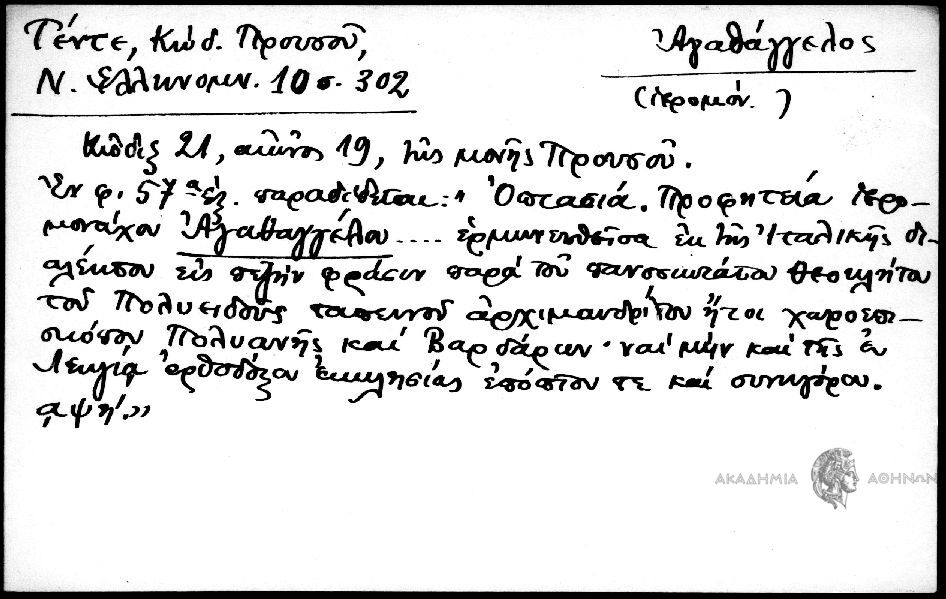 Τέντε, Κώδ. Προυσοῦ,
Ν. Ἑλληνομν. 10 σ. 302
Ἀγαθάγγελος
(ἱερομόν.)
Κῶδιξ 21, αἰῶνος 19, τῆς μονῆς Προυσοῦ.
Ἐν φ. 57α ἑξ. παραδίδεται: "Ὀπτασιά. Προφητεία ἱερο-
μονάχου Ἀγαθαγγέλου .... ἑρμηνευθεῖσα ἐκ τῆς Ἰταλικῆς δι-
αλέκτου εἰς πεζὴν φράσιν παρά τοῦ πανοσιωτάτου Θεοκλήτου
τοῦ Πολυειδοῦς ταπεινοῦ ἀρχιμανδρίτου ἤτοι χωροεπι-
σκόπου Πολυανῆς καί Βαρδάρων· ναί μήν καί τῆς ἐν
Λειψίᾳ ὀρθοδόξου ἐκκλησίας ἐπόπτου τε καί συνηγόρου.
͵αψη΄.»
ΑΚΑΔΗΜΙΑ ΑΘΗΝΩΝ